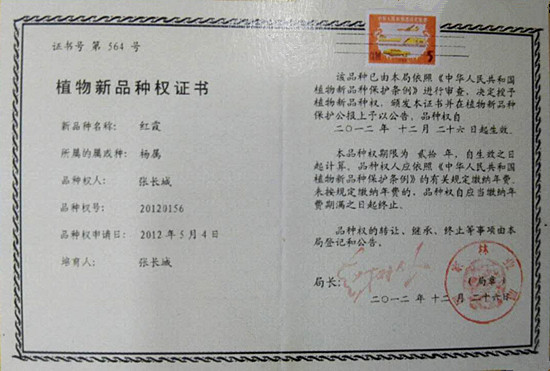 证书号 第 564 号
植物新品种权证书
新品种名称： 红霞
所属的属或种： 杨属
品种权人： 张长城
品种权号： 20120156
品种权申请日： 2012 年 5 月 4 日
培育人： 张长城
5
该品种已由本局依照《中华人民共和国
植物新品种保护条例》进行审查，决定授予
植物新品种权，颁发本证书并在植物新品种
保护公报上予以公告，品种权自
二〇一二年 十二月 二十六日起生效。
本品种权期限为 贰拾 年，自生效之日
起计算，品种权人应依照《中华人民共和国
植物新品种保护条例》的有关规定缴纳年费。
未按规定缴纳年费的，品种权自应当缴纳年
费期满之日起终止。
品种权的转让、继承、终止等事项由本
局登记和公告。
局长：
（局章）
二〇一二年 十二月 二十六日